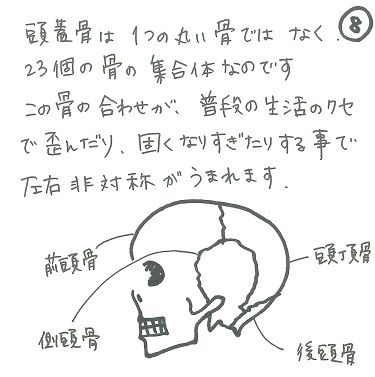 ⑧
頭蓋骨は 1つの丸い骨では なく、
23個の骨の集合体なのです
この骨の合わせが、普段の生活のクセ
で歪んだり、固くなりすぎたりする事で
左右非対称がうまれます.
前頭骨
頭頂骨
側頭骨
後頭骨